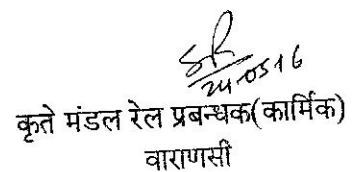 24.05.16
कृते मंडल रेल प्रबन्धक(कार्मिक)
वाराणसी